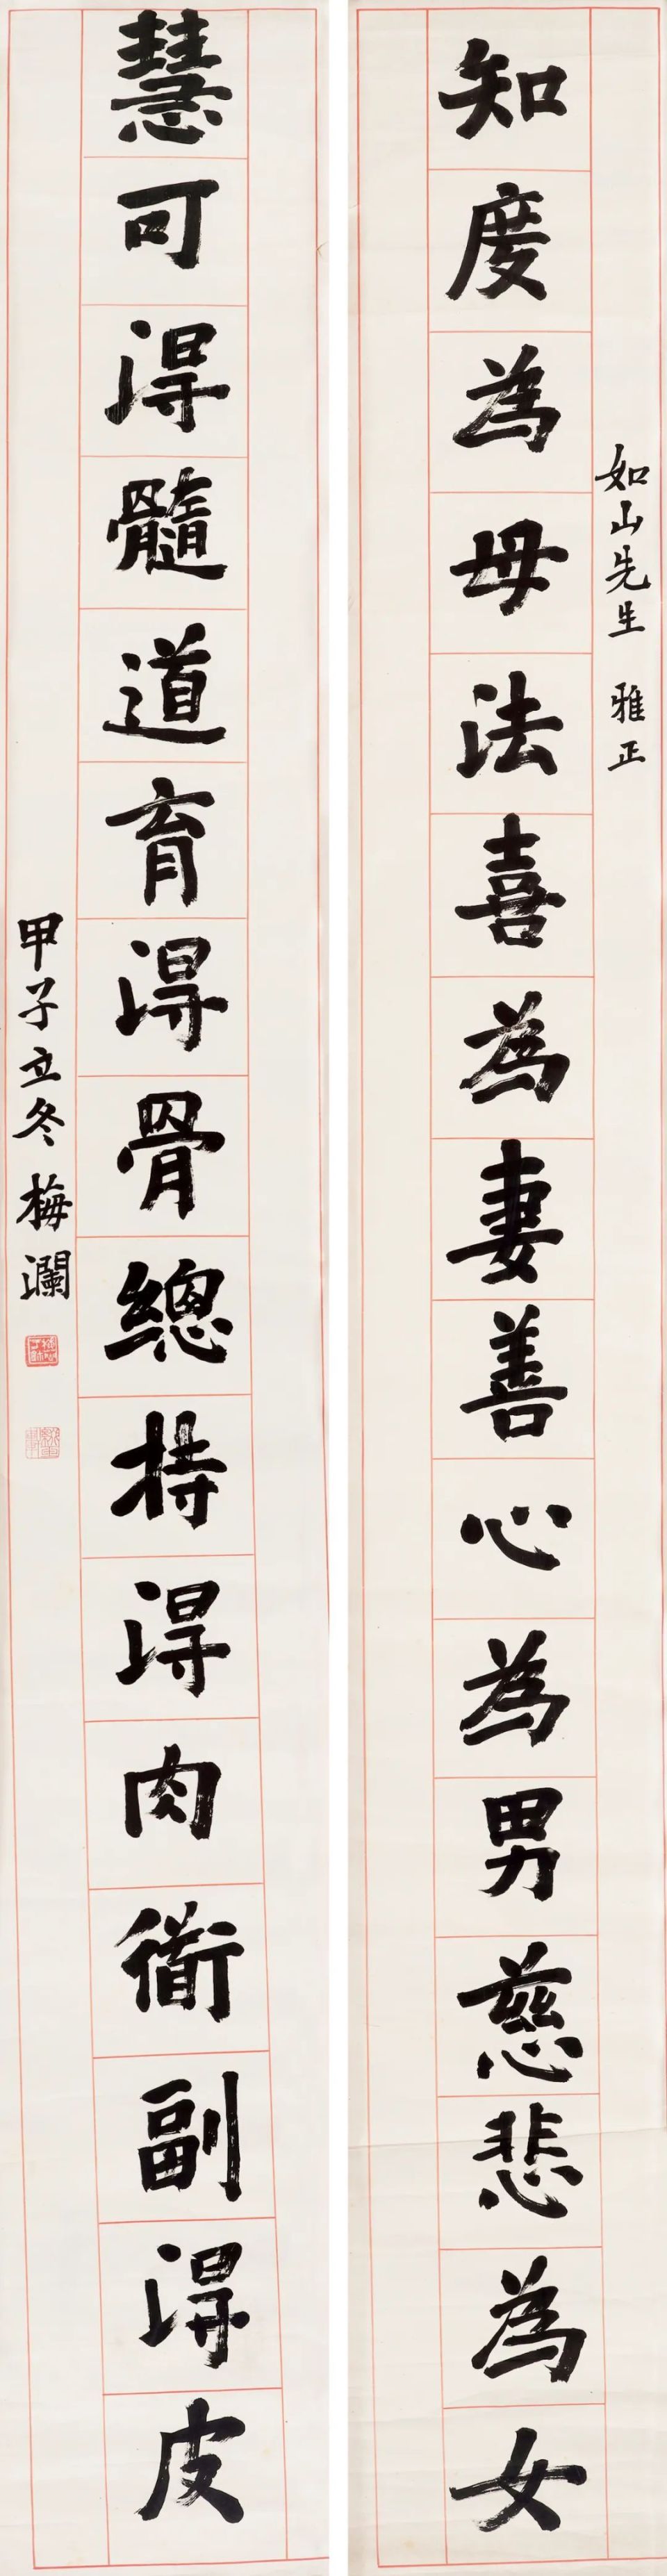 如山先生 雅正
知度為母法喜為妻善心為男慈悲為女
慧可得髓道育得骨總持得肉衜副得皮
甲子立冬 梅瀾